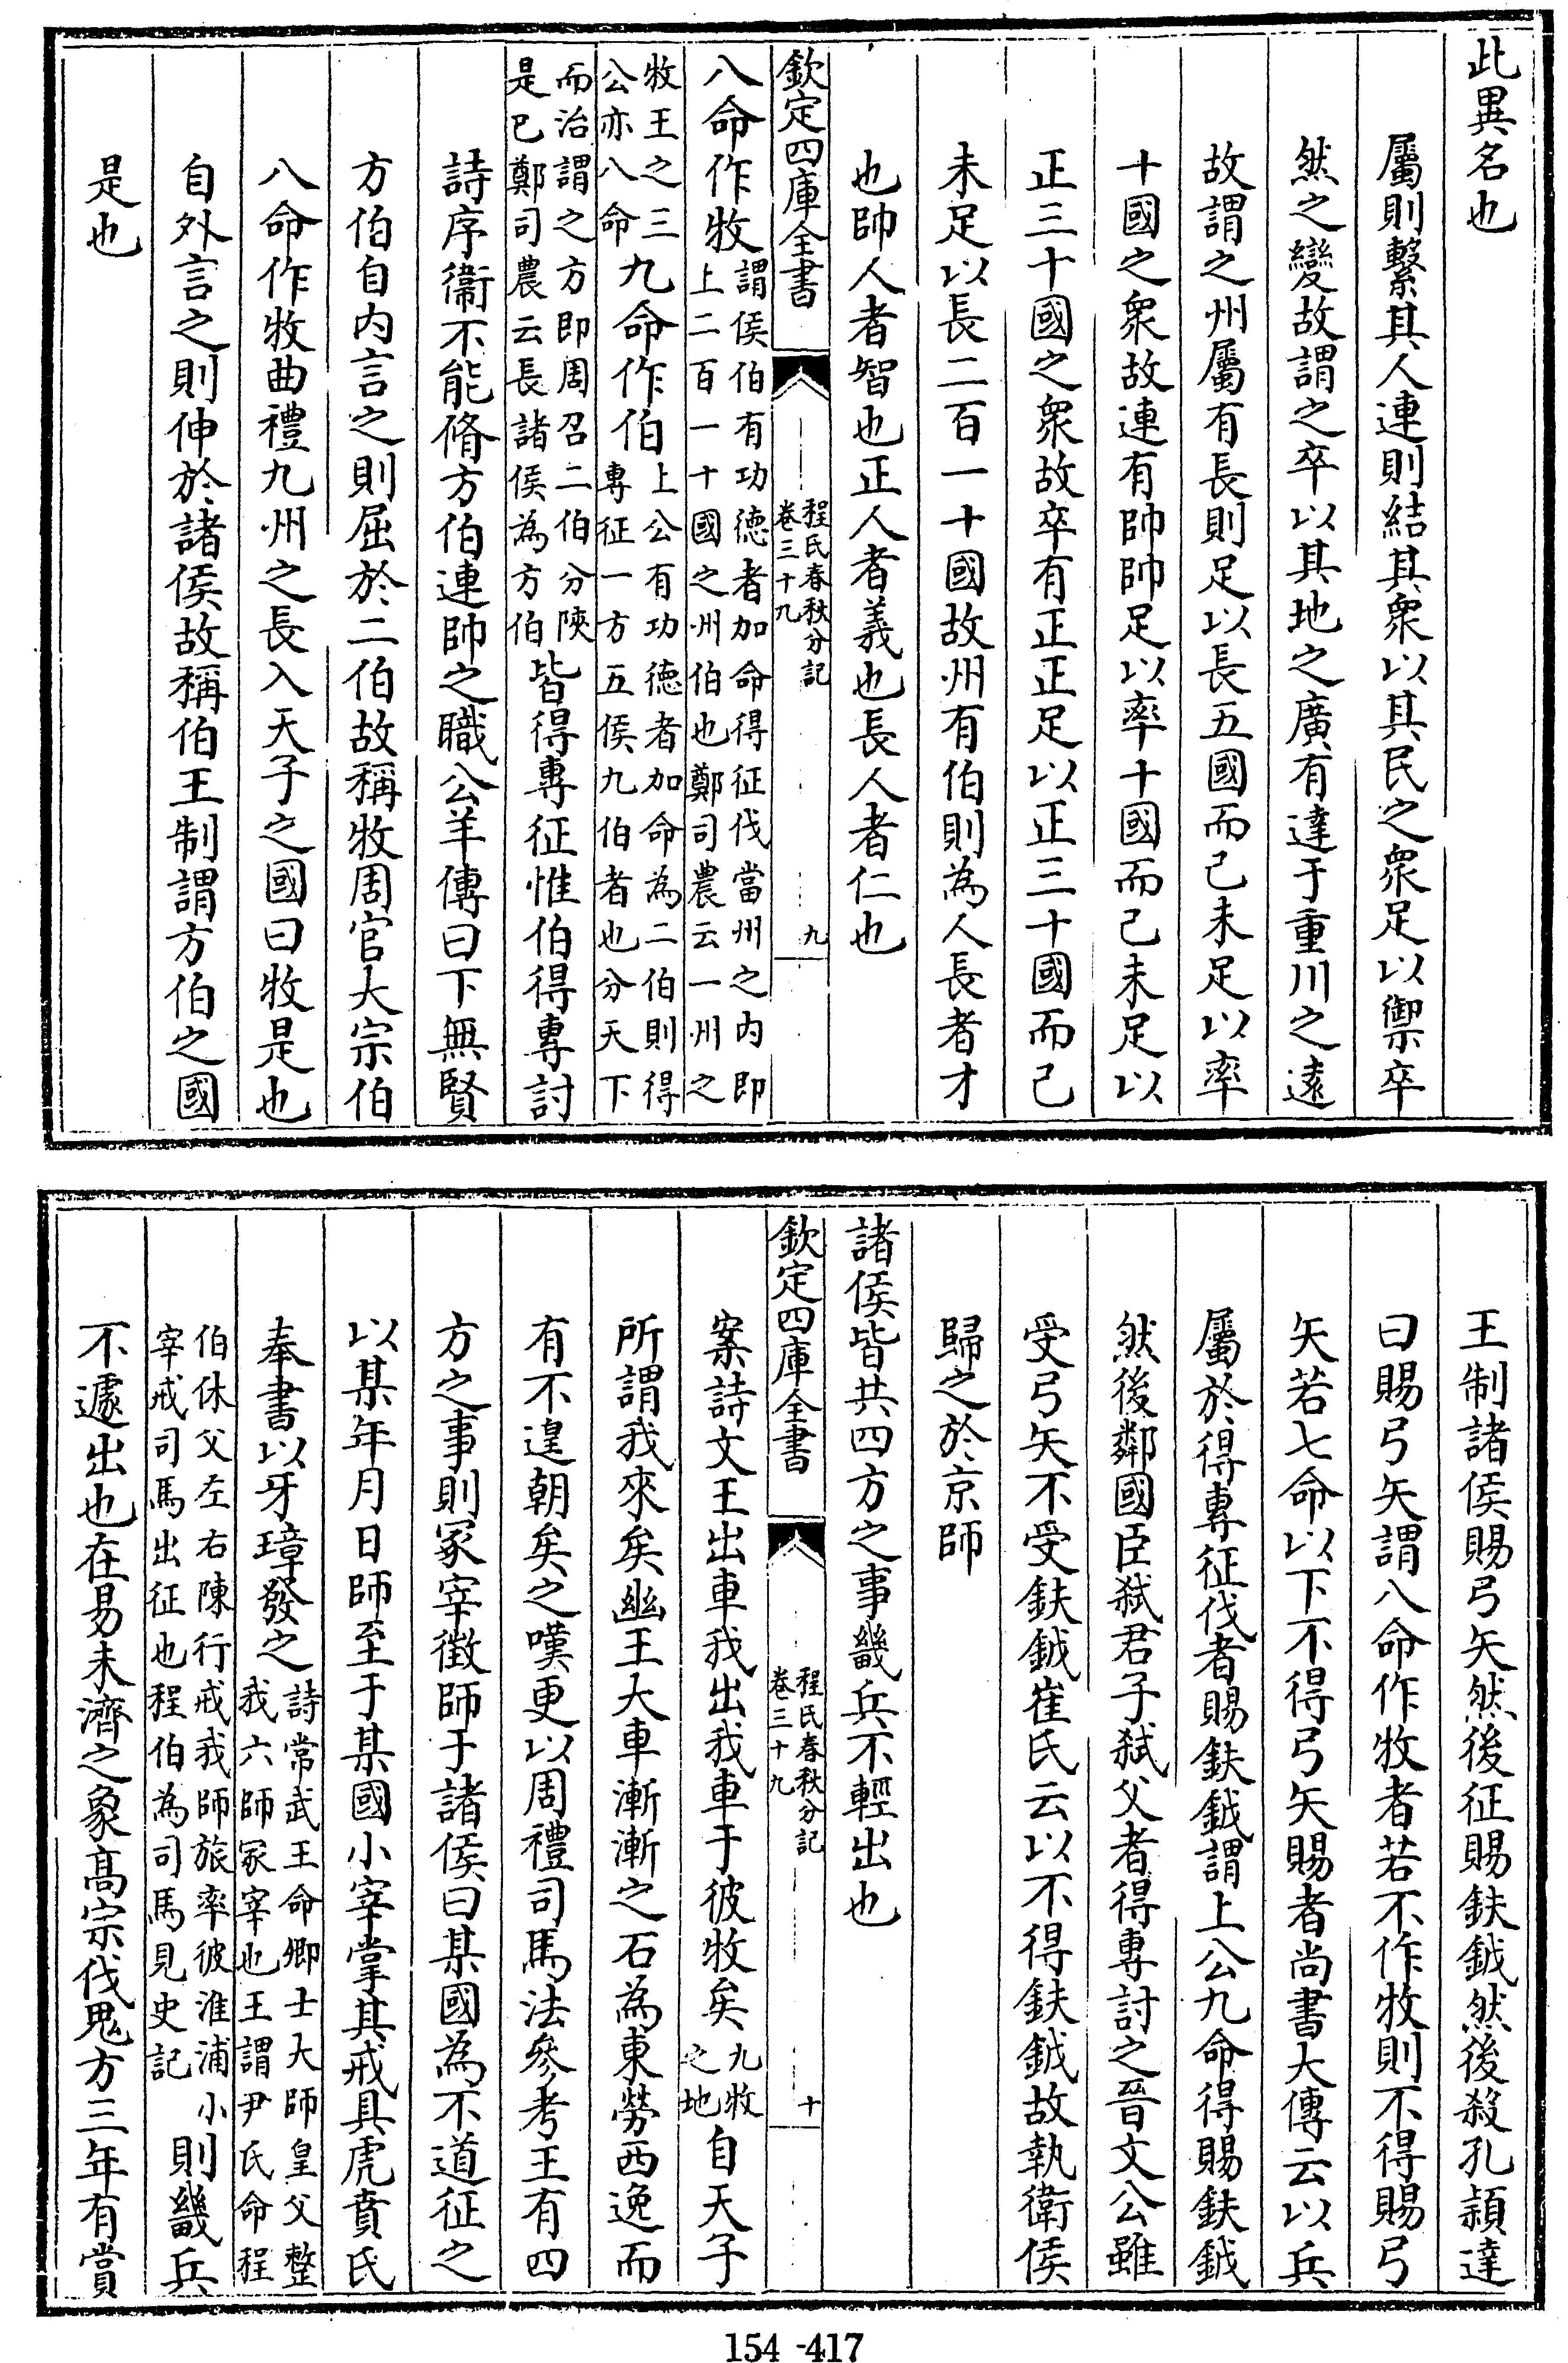 此異名也
屬則繫其人連則結其衆以其民之衆足以禦卒
然之變故謂之卒以其地之廣有達于重川之遠
故謂之州屬有長則足以長五國而己未足以率
十國之衆故連有帥帥足以率十國而己未足以
正三十國之衆故卒有正正足以正三十國而己
未足以長二百一十國故州有伯則為人長者才
也帥人者智也正人者義也長人者仁也
欽定四庫全書
程氏春秋分記
卷三十九
九
八命作牧謂侯伯有功德者加命得征伐當州之內即
上二百一十國之州伯也鄭司農云一州之
牧王之三
公亦八命九命作伯上公有功德者加命為二伯則得
專征一方五侯九伯者也分天下
而治謂之方即周召二伯分陜
是巳鄭司農云長諸侯為方伯皆得專征惟伯得專討
詩序衞不能脩方伯連帥之職公羊傳曰下無賢
方伯自内言之則屈於二伯故稱牧周官大宗伯
八命作牧曲禮九州之長入天子之國曰牧是也
自外言之則伸於諸侯故稱伯王制謂方伯之國
是也
王制諸侯賜弓矢然後征賜鈇鉞然後殺孔頴達
曰賜弓矢謂八命作牧者若不作牧則不得賜弓
矢若七命以下不得弓矢賜者尚書大傳云以兵
屬於得專征伐者賜鈇鉞謂上公九命得賜鈇鉞
然後鄰國臣弑君子弑父者得專討之晉文公雖
受弓矢不受鈇鉞崔氏云以不得鈇鉞故執衞侯
歸之於京師
諸侯皆共四方之事畿兵不輕出也
欽定四庫全書
程氏春秋分記
卷三十九
十
案詩文王出車我出我車于彼牧矣九牧
之地自天子
所謂我來矣幽王大車漸漸之石為東勞西逸而
有不遑朝矣之嘆更以周禮司馬法參考王有四
方之事則冢宰徴師于諸侯曰某國為不道征之
以某年月日師至于某國小宰掌其戒具虎賁氏
奉書以牙璋發之詩常武王命卿士大師皇父整
我六師冢宰也王謂尹氏命程
伯休父左右陳行戒我師旅率彼淮浦小
宰戒司馬出征也程伯為司馬見史記則畿兵
不遽出也在易未濟之象髙宗伐鬼方三年有賞
154-417